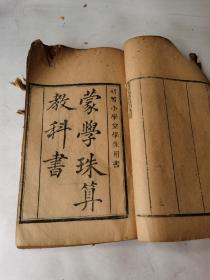 初等小學堂學生用書
蒙學珠算
教科書